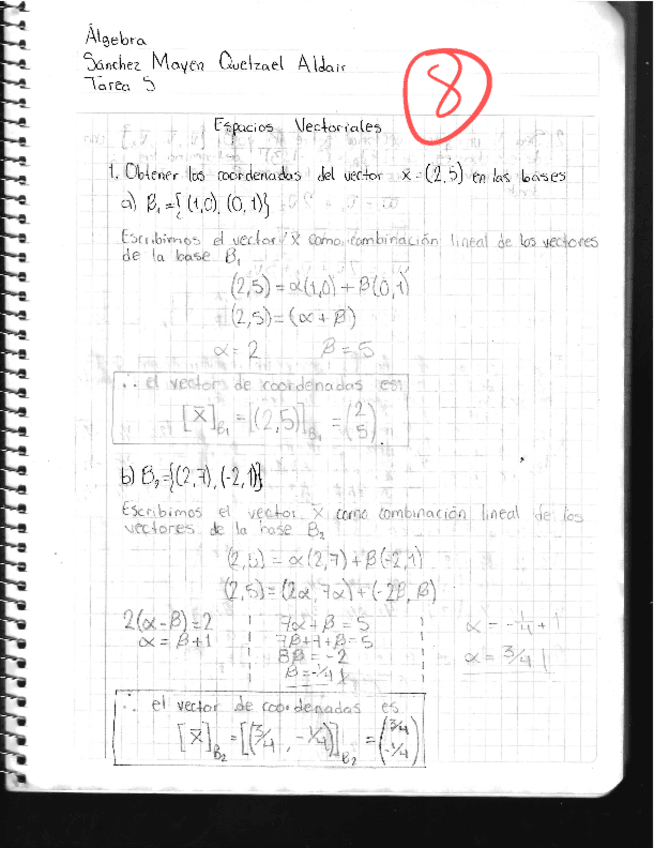 Álgebra
Sánchez Mayen Quetzael Aldair
Tarea 5
8
Espacios Vectoriales
1. Obtener las coordenadas del vector x̄ = (2,5) en las bases
a) B₁ = {(1,0), (0,1)}
Escribimos el vector x̄ como combinación lineal de los vectores
de la base B₁
(2,5) = α(1,0) + β(0,1)
(2,5) = (α + β)
α = 2 β = 5
∴ el vector de coordenadas es:
[x̄]B₁ = [(2,5)]B₁ = (2 5).
b) B₂ = {(2,7), (-2,1)}
Escribimos el vector x̄ como combinación lineal de los
vectores de la base B₂
(2,5) = α(2,7) + β(-2,1)
(2,5) = (2α, 7α) + (-2β, β)
2(α - β) = 2
α = β + 1
7α + β = 5
7β + 7 + β = 5
8β = -2
β = -1/4
α = -1/4 + 1
α = 3/4
∴ el vector de coordenadas es
[x̄]B₂ = [(3/4, -1/4)]B₂ = (3/4 -1/4)